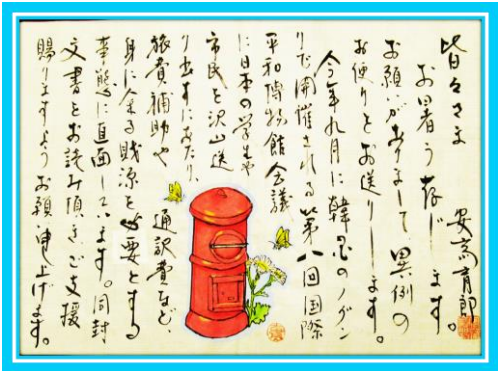 皆々さま
安斎育郎
お暑う存じます。
お願いがありまして、異例の
お便りをお送りします。
今年九月に韓国のノグン
リで開催される第八回国際
平和博物館会議
に日本の学生や
市民を沢山送
り出すにあたり、
旅費補助や 通訳費など、
身に余る財源を必要とする
事態に直面しています。同封
文書をお読み頂き、ご支援
賜りますようお願い申し上げます。